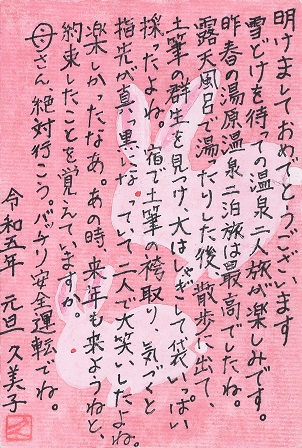 明けましておめでとうございます
雪どけを待っての温泉二人旅が楽しみです。
昨春の湯原温泉二泊旅は最高でしたね。
露天風呂で湯ったりした後、散歩に出て、
土筆の群生を見つけ、大はしゃぎして袋いっぱい
採ったよね。宿で土筆の袴取り、気づくと
指先が真っ黒になっていて、二人で大笑いしたよね。
楽しかったなあ。あの時、来年も来ようねと、
約束したことを覚えていますか。
母さん、絶対行こう。バッチリ安全運転でね。
令和五年 元旦 久美子